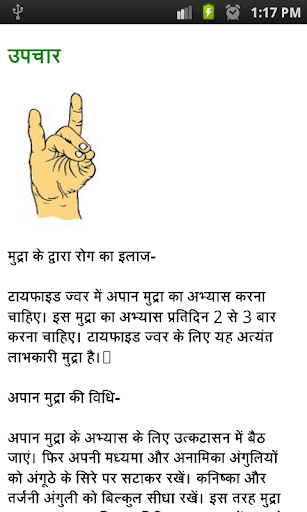 1:17 PM
उपचार
मुद्रा के द्वारा रोग का इलाज-
टायफाइड ज्वर में अपान मुद्रा का अभ्यास करना
चाहिए। इस मुद्रा का अभ्यास प्रतिदिन 2 से 3 बार
करना चाहिए। टायफाइड ज्वर के लिए यह अत्यंत
लाभकारी मुद्रा है।
अपान मुद्रा की विधि-
अपान मुद्रा के अभ्यास के लिए उत्कटासन में बैठ
जाएं। फिर अपनी मध्यमा और अनामिका अंगुलियों
को अंगूठे के सिरे पर सटाकर रखें। कनिष्का और
तर्जनी अंगुली को बिल्कुल सीधा रखें। इस तरह मुद्रा